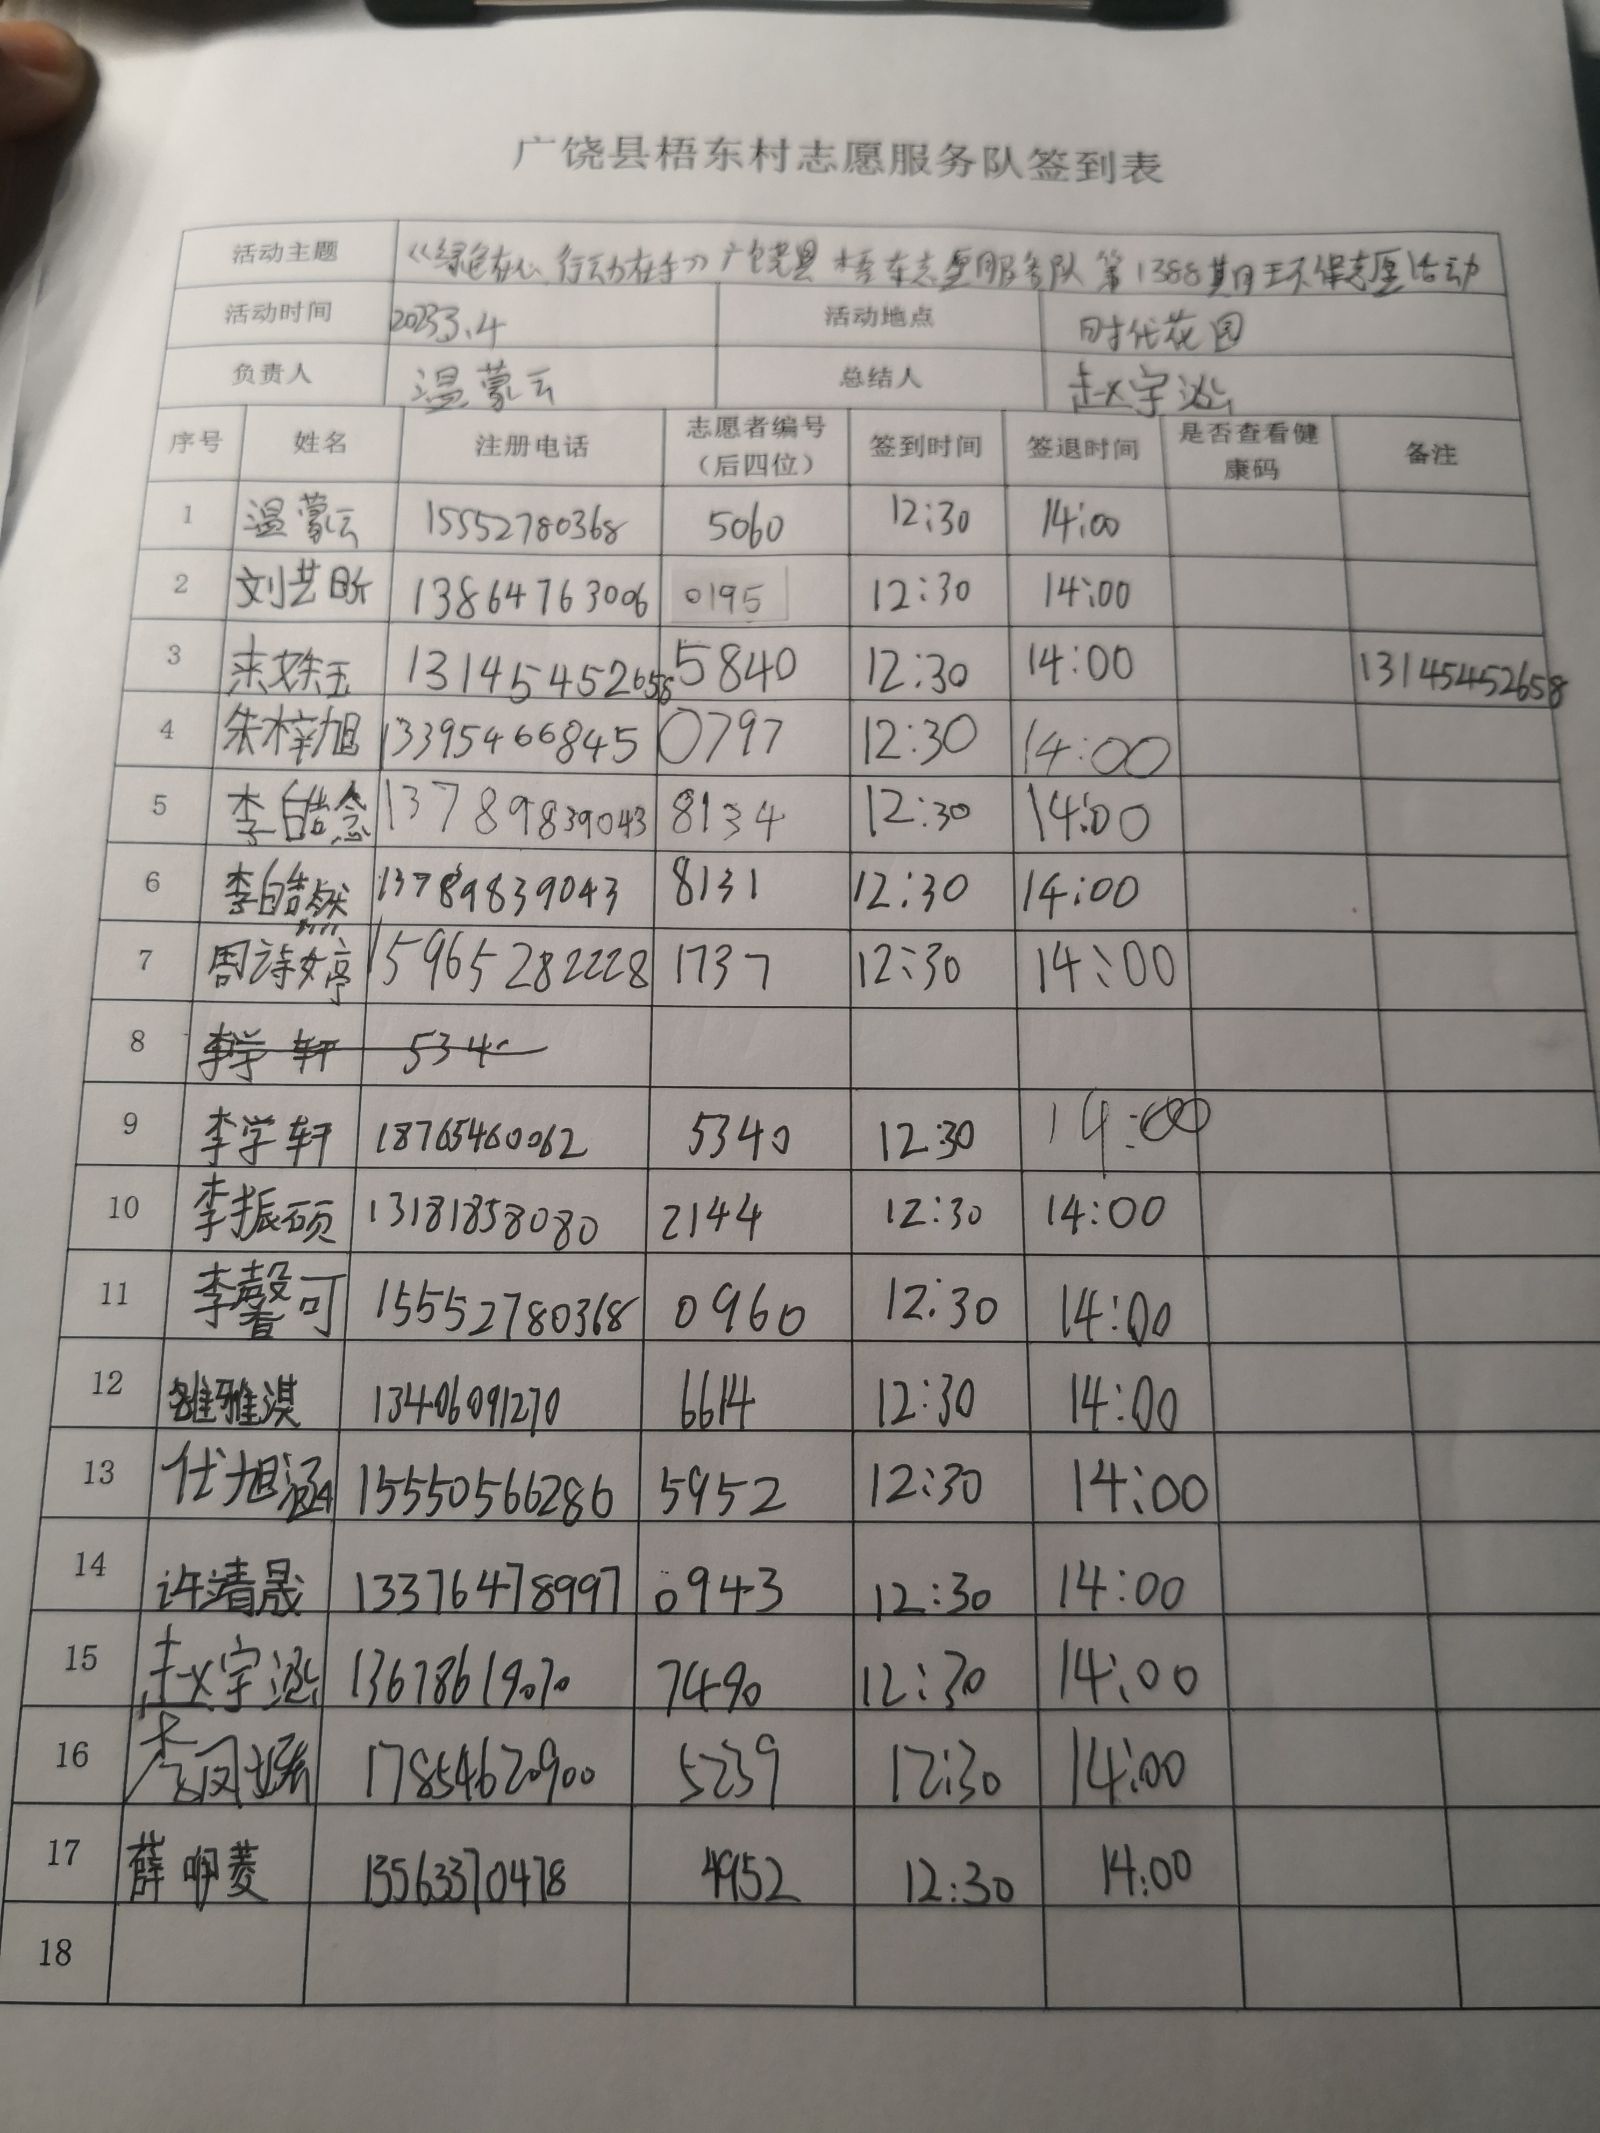 广饶县梧东村志愿服务队签到表
活动主题 《绿色在心、行动在手》广饶县梧东志愿服务队第1388期环保志愿活动
活动时间 2023.3.4 活动地点 时代花园
负责人 温蒙云 总结人 赵宇涵
序号 姓名 注册电话 志愿者编号（后四位） 签到时间 签退时间 是否查看健康码 备注
1 温蒙云 15552780368 5060 12:30 14:00
2 刘艺昕 13864763006 0195 12:30 14:00
3 13145452658 5840 12:30 14:00 13145452658
4 朱梓旭 13395466845 0797 12:30 14:00
5 李皓念 13789839043 8134 12:30 14:00
6 李皓然 13789839043 8131 12:30 14:00
7 周诗婷 15965282228 1737 12:30 14:00
8 李学轩 534
9 李学轩 18765460062 5340 12:30 14:00
10 李振硕 13181858080 2144 12:30 14:00
11 李馨可 15552780368 0960 12:30 14:00
12 雒雅淇 13406091270 6614 12:30 14:00
13 仕旭涵 15550566286 5952 12:30 14:00
14 许靖晟 13376478997 0943 12:30 14:00
15 赵宇涵 13678619070 7490 12:30 14:00
16 17854620900 5239 12:30 14:00
17 薛咿菱 13563370478 4952 12:30 14:00
18